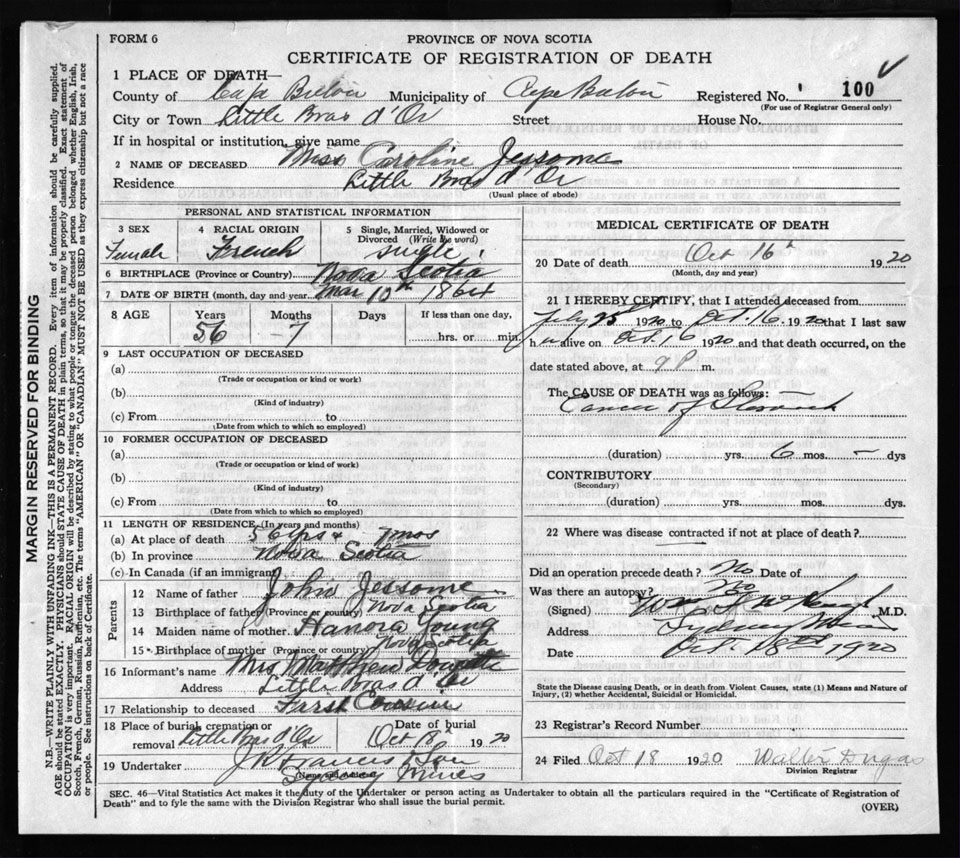 FORM 6
PROVINCE OF NOVA SCOTIA
CERTIFICATE OF REGISTRATION OF DEATH
1 PLACE OF DEATH—
County of Cape Breton Municipality of Cape Breton Registered No. 100
(For use of Registrar General only)
City or Town Little Bras d'Or Street House No.
If in hospital or institution, give name
2 NAME OF DECEASED Miss Caroline Jessome
Residence Little Bras d'Or
(Usual place of abode)
PERSONAL AND STATISTICAL INFORMATION
3 SEX 4 RACIAL ORIGIN 5 Single, Married, Widowed or
Divorced (Write the word)
Female French single
6 BIRTHPLACE (Province or Country) Nova Scotia
7 DATE OF BIRTH (month, day and year) Mar 10th 1864
8 AGE Years Months Days If less than one day,
56 7 hrs. or min.
9 LAST OCCUPATION OF DECEASED
(a)
(Trade or occupation or kind or work)
(b)
(Kind of industry)
(c) From to
(Date from which to which so employed)
10 FORMER OCCUPATION OF DECEASED
(a)
(Trade or occupation or kind of work)
(b)
(Kind of industry)
(c) From to
(Date from which to which so employed)
11 LENGTH OF RESIDENCE (In years and months)
(a) At place of death 56 yrs & 7 mos
(b) In province Nova Scotia
(c) In Canada (if an immigrant)
Parents
12 Name of father John Jessome
13 Birthplace of father (Province or country) Nova Scotia
14 Maiden name of mother Hanora Young
15 Birthplace of mother (Province or country) Nova Scotia
16 Informant's name Mrs Matthew
Address Little Bras d'Or
17 Relationship to deceased First Cousin
18 Place of burial, cremation or Date of burial
removal Little Bras d'Or Oct 18th 1920
19 Undertaker J R Francis & Son
(Name and Address)
Sydney Mines
MEDICAL CERTIFICATE OF DEATH
20 Date of death Oct 16th 1920
(Month, day and year)
21 I HEREBY CERTIFY, that I attended deceased from
July 25 1920 to Oct. 16 1920 that I last saw
her alive on Oct. 16 1920 and that death occurred, on the
date stated above, at 9 P m.
The CAUSE OF DEATH was as follows:—
Cancer of Stomach
(duration) yrs. 6 mos. – dys
CONTRIBUTORY
(Secondary)
(duration) yrs. mos. dys.
22 Where was disease contracted if not at place of death?
Did an operation precede death? No Date of
Was there an autopsy? No
(Signed) M.D.
Address Sydney Mines
Date Oct. 18th 1920
State the Disease causing Death, or in death from Violent Causes, state (1) Means and Nature of
Injury, (2) whether Accidental, Suicidal or Homicidal.
23 Registrar's Record Number
24 Filed Oct 18 1920 Walter Dugas
Division Registrar
SEC. 46—Vital Statistics Act makes it the duty of the Undertaker or person acting as Undertaker to obtain all the particulars required in the "Certificate of Registration of
Death" and to fyle the same with the Division Registrar who shall issue the burial permit.
(OVER)
MARGIN RESERVED FOR BINDING
N.B.—WRITE PLAINLY WITH UNFADING INK—THIS IS A PERMANENT RECORD. Every item of information should be carefully supplied.
AGE should be stated EXACTLY. PHYSICIANS should STATE CAUSE OF DEATH in plain terms, so that it may be properly classified. Exact statement of
OCCUPATION is very important. RACIAL ORIGIN will be described by stating to what people or tongue the deceased person belonged whether English, Irish,
Scotch, French, German, Russian, Ruthenian, etc. The terms "AMERICAN" OR "CANADIAN" MUST NOT BE USED as they express citizenship but not a race
or people. See instructions on back of Certificate.